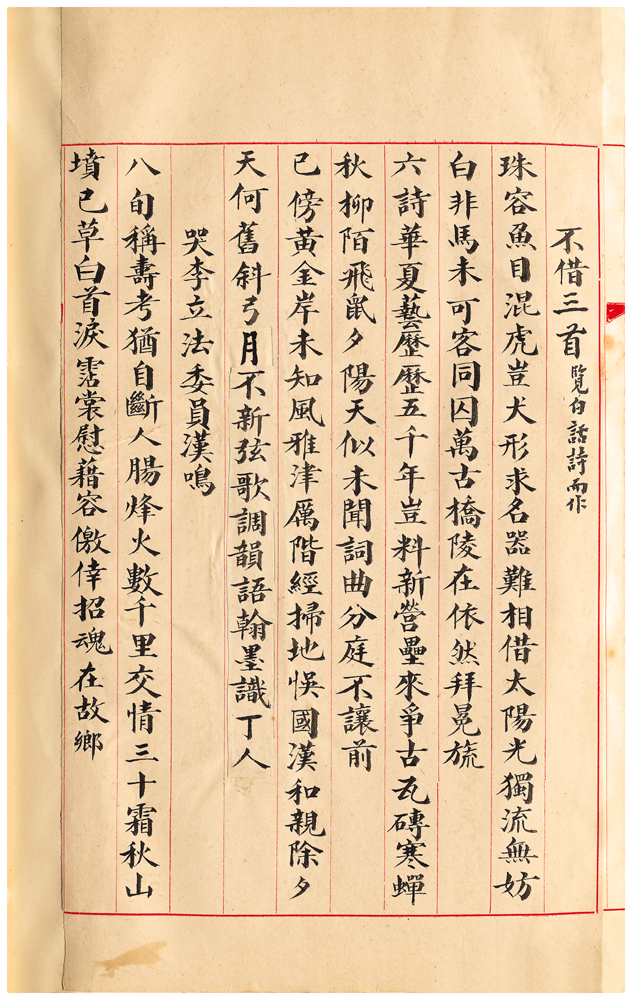 不借三首 覽白話詩而作
珠容魚目混虎豈犬形求名器難相借太陽光獨流無妨
白非馬未可客同囚萬古橋陵在依然拜冕旒
六詩華夏藝歷歷五千年豈料新營壘來爭古瓦磚寒蟬
秋柳陌飛鼠夕陽天似未聞詞曲分庭不讓前
已傍黃金岸未知風雅津厲階經掃地悞國漢和親除夕
天何舊斜弓月不新弦歌調韻語翰墨識丁人
哭李立法委員漢鳴
八旬稱壽考猶自斷人腸烽火數千里交情三十霜秋山
墳已草白首淚霑裳慰藉容儌倖招魂在故鄉